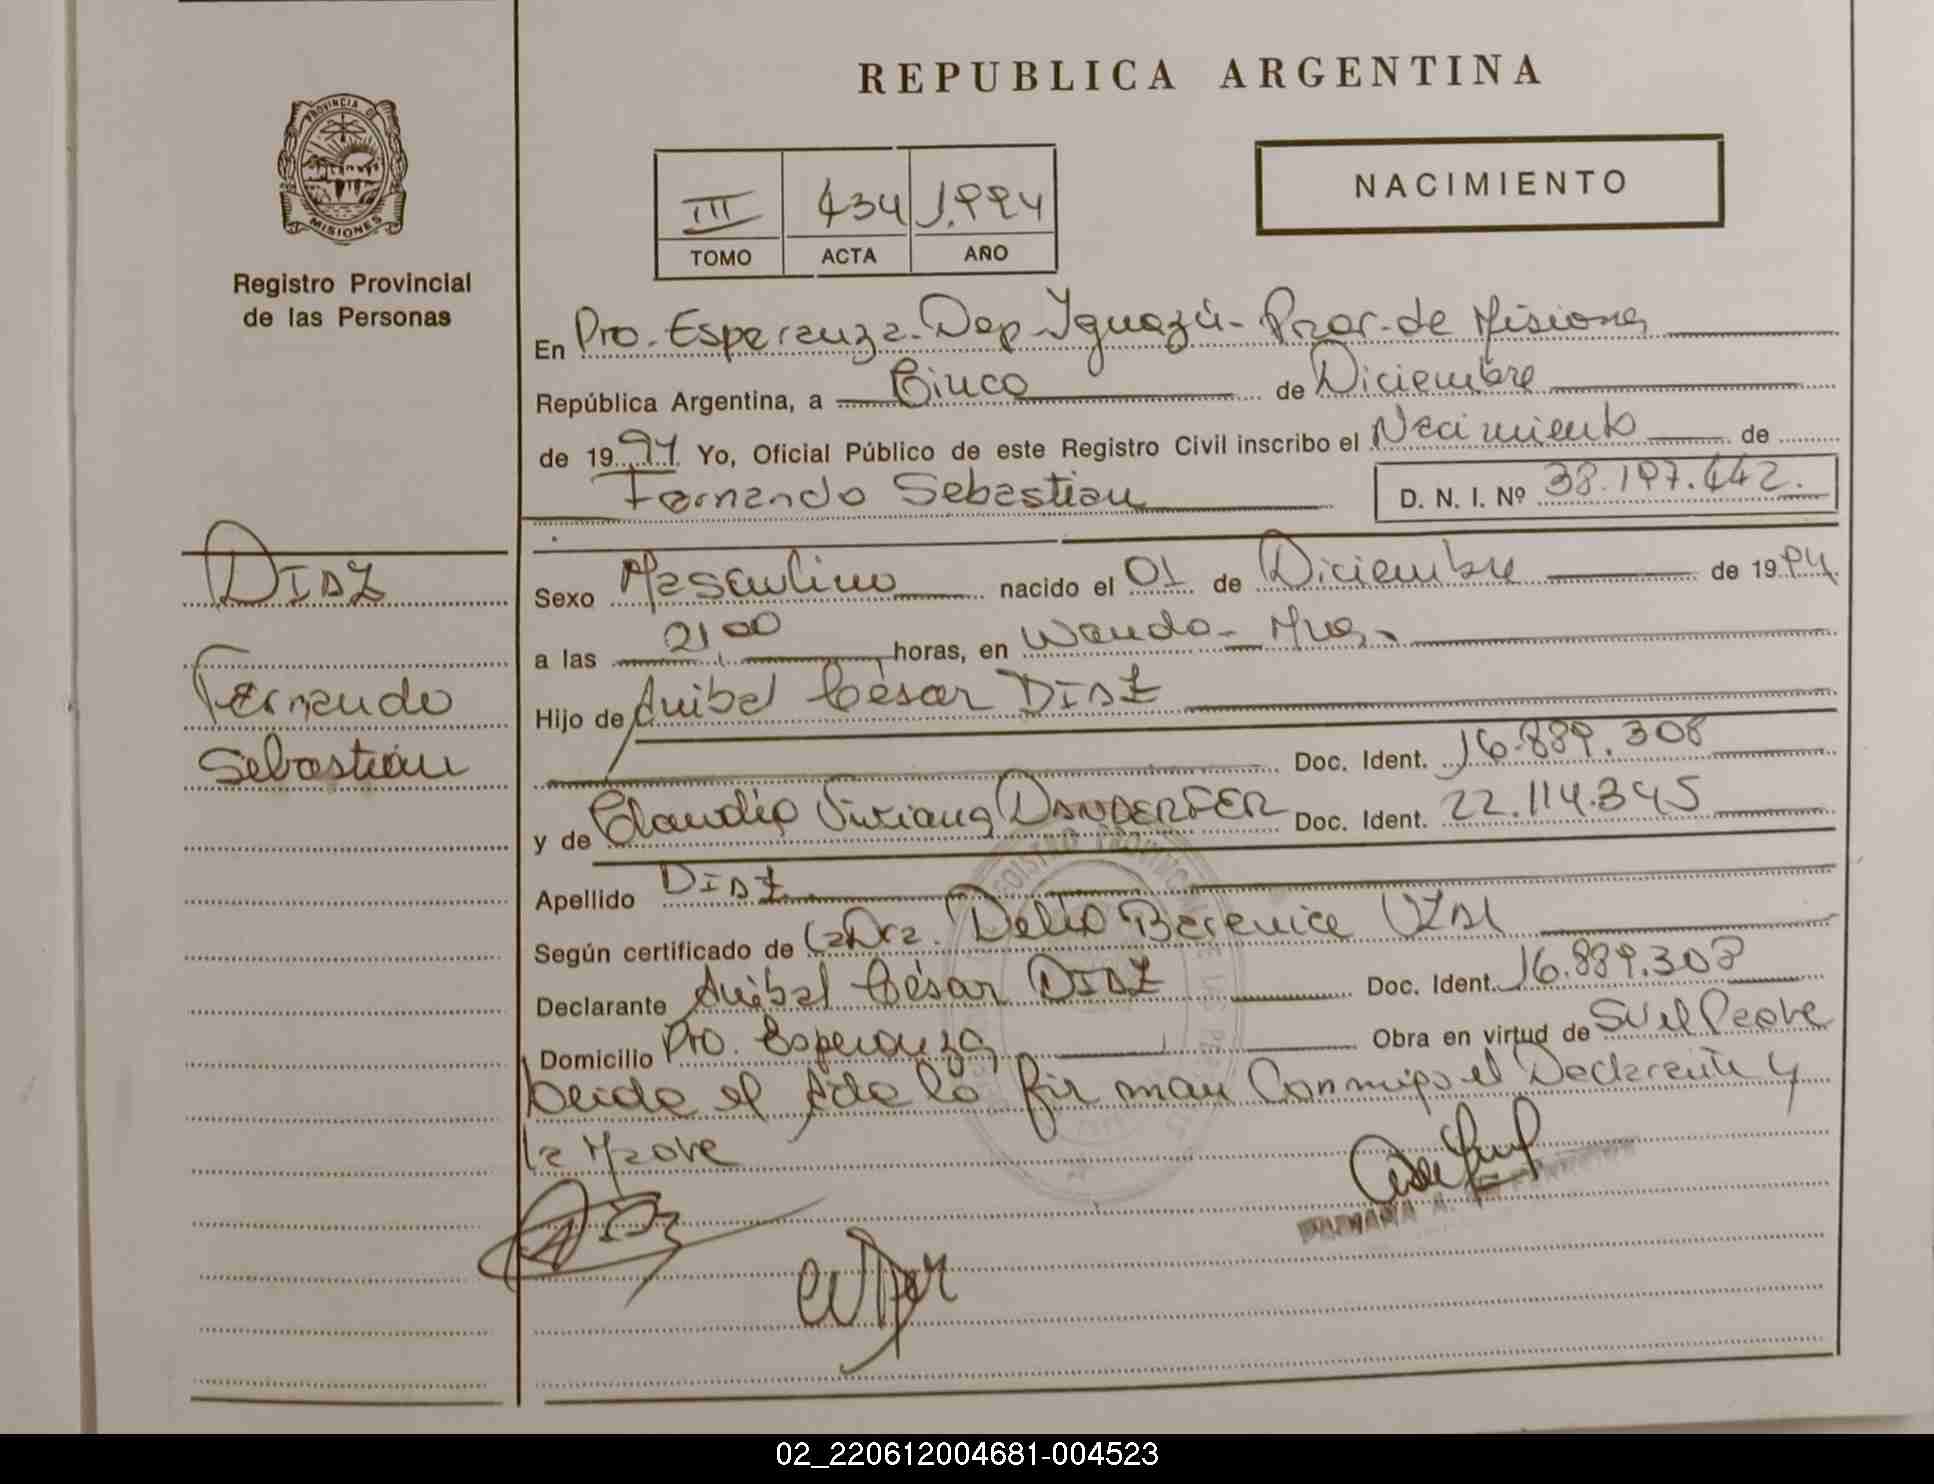 REPUBLICA ARGENTINA
PROVINCIA DE
MISIONES
Registro Provincial
de las Personas
NACIMIENTO
III 434 1.994
TOMO ACTA AÑO
En Pto. Esperanza - Dep Iguazú - Prov. de Misiones
República Argentina, a Cinco de Diciembre
de 1994 Yo, Oficial Público de este Registro Civil inscribo el Nacimiento de
Fernando Sebastian D. N. I. Nº 38.197.442.
DIAZ
Fernando
Sebastián
Sexo Masculino nacido el 01 de Diciembre de 1994
a las 21,00 horas, en Wanda - Mnes.
Hijo de Anibal César DIAZ
Doc. Ident. 16.889.308
y de Claudia Viviana DANDERFER Doc. Ident. 22.114.345
Apellido DIAZ
Según certificado de la Dra. Delia Berenice
Declarante Anibal César DIAZ Doc. Ident. 16.889.308
Domicilio Pto. Esperanza Obra en virtud de Ser el Padre
Leida el Acta la firman Conmigo el Declarante y
la Madre
02_220612004681-004523